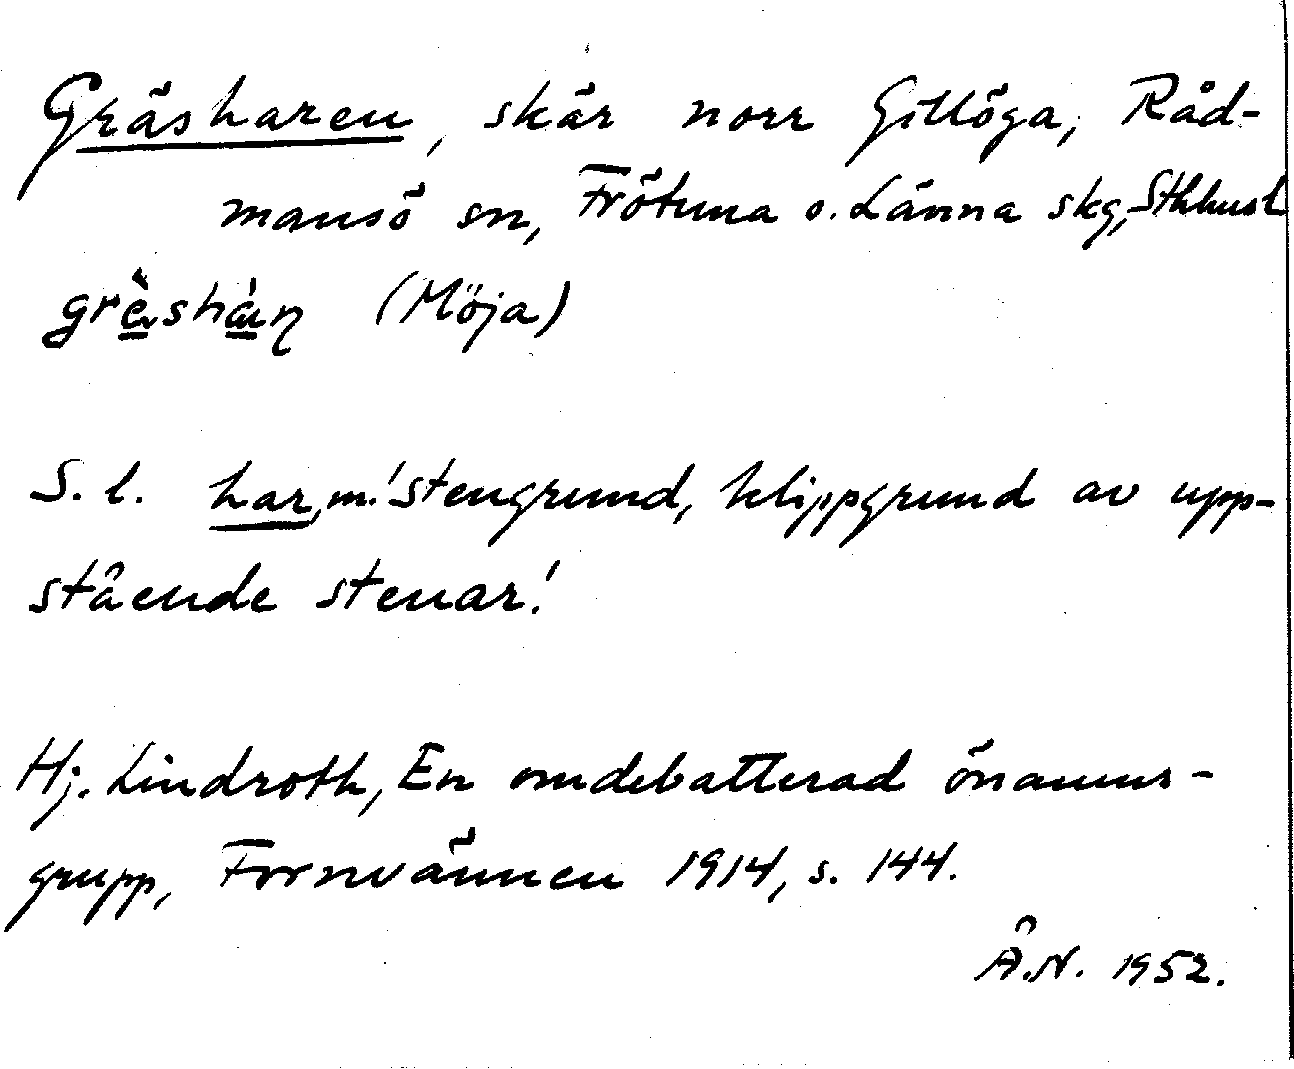 Gräsharen, skär norr Gillöga, Råd-
mansö sn, Frötuna o. Länna skg, Sthlms l
grèshàn (Möja)
S. l. har, m. 'stengrund, klippgrund av upp-
stående stenar.'
Hj. Lindroth, En omdebatterad önamns-
grupp, Fornvännen 1914, s. 144.
Å.N. 1952.